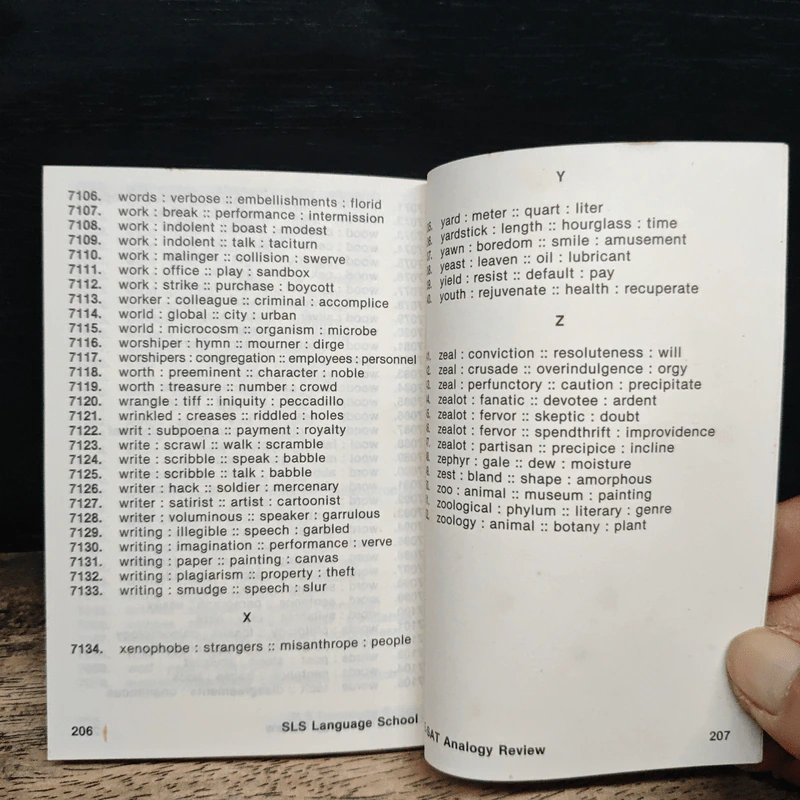 7106. words : verbose :: embellishments : florid
7107. work : break :: performance : intermission
7108. work : indolent :: boast : modest
7109. work : indolent :: talk : taciturn
7110. work : malinger :: collision : swerve
7111. work : office :: play : sandbox
7112. work : strike :: purchase : boycott
7113. worker : colleague :: criminal : accomplice
7114. world : global :: city : urban
7115. world : microcosm :: organism : microbe
7116. worshiper : hymn :: mourner : dirge
7117. worshipers : congregation :: employees : personnel
7118. worth : preeminent :: character : noble
7119. worth : treasure :: number : crowd
7120. wrangle : tiff :: iniquity : peccadillo
7121. wrinkled : creases :: riddled : holes
7122. writ : subpoena :: payment : royalty
7123. write : scrawl :: walk : scramble
7124. write : scribble :: speak : babble
7125. write : scribble :: talk : babble
7126. writer : hack :: soldier : mercenary
7127. writer : satirist :: artist : cartoonist
7128. writer : voluminous :: speaker : garrulous
7129. writing : illegible :: speech : garbled
7130. writing : imagination :: performance : verve
7131. writing : paper :: painting : canvas
7132. writing : plagiarism :: property : theft
7133. writing : smudge :: speech : slur
X
7134. xenophobe : strangers :: misanthrope : people
206 SLS Language School
Y
yard : meter :: quart : liter
yardstick : length :: hourglass : time
yawn : boredom :: smile : amusement
yeast : leaven :: oil : lubricant
yield : resist :: default : pay
youth : rejuvenate :: health : recuperate
Z
zeal : conviction :: resoluteness : will
zeal : crusade :: overindulgence : orgy
zeal : perfunctory :: caution : precipitate
zealot : fanatic :: devotee : ardent
zealot : fervor :: skeptic : doubt
zealot : fervor :: spendthrift : improvidence
zealot : partisan :: precipice : incline
zephyr : gale :: dew : moisture
zest : bland :: shape : amorphous
zoo : animal :: museum : painting
zoological : phylum :: literary : genre
zoology : animal :: botany : plant
Analogy Review 207